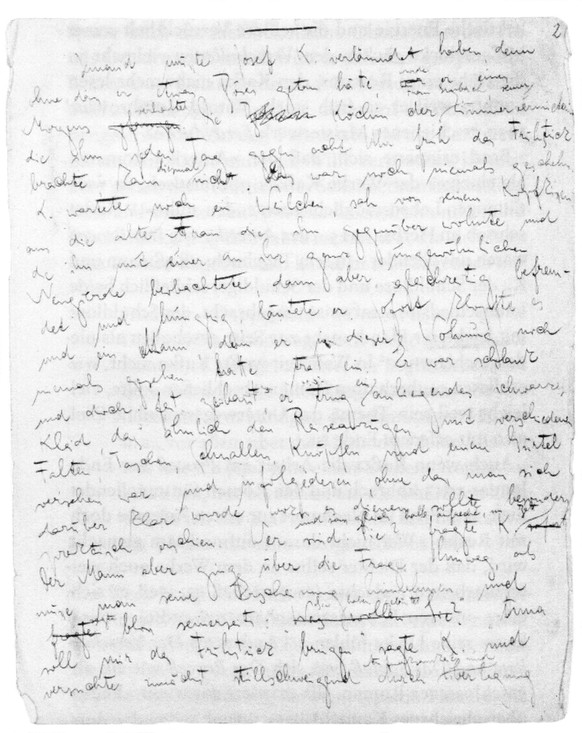 2
Jemand musste Josef K. verläumdet haben, denn
ohne dass er etwas Böses getan hätte, wurde er eines
Morgens verhaftet. Die Köchin der Zimmervermieterin
die ihm jeden Tag gegen acht Uhr früh das Frühstück
brachte kam diesmal nicht. Das war noch niemals geschehn.
K. wartete noch ein Weilchen, sah von seinem Kopfkissen
aus die alte Frau die ihm gegenüber wohnte und
die ihn mit einer an ihr ganz ungewöhnlichen
Neugierde beobachtete dann aber gleichzeitig befrem-
det und hungrig läutete er. Sofort klopfte es
und ein Mann den er in dieser Wohnung noch
niemals gesehen hatte trat ein. Er war schlank
und doch fest gebaut er trug ein anliegendes schwarzes
Kleid das ähnlich den Reiseanzügen mit verschiedenen
Falten Taschen Schnallen Knöpfen und einem Gürtel
versehen war und infolgedessen ohne dass man sich
darüber klar wurde wozu es dienen sollte besonders
praktisch erschien. Wer sind Sie? fragte K. und sass gleich halb aufrecht im Bett
Der Mann aber ging über die Frage hinweg, als
müsse man seine Erscheinung hinnehmen und
sagte bloss seinerseits Sie haben geläutet? Anna
soll mir das Frühstück bringen sagte K. und
versuchte zunächst stillschweigend durch Überlegung